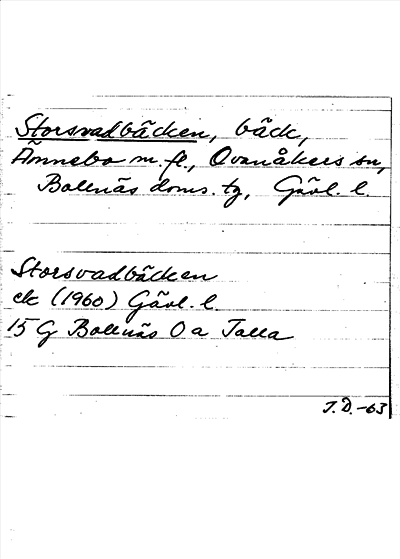 Storsvadbäcken, bäck,
Ännebo m. fl., Ovanåkers sn,
Bollnäs doms. tg, Gävl. l.
Storsvadbäcken
ek (1960) Gävl. l.
15 G Bollnäs 0 a Talla
J.D.-63